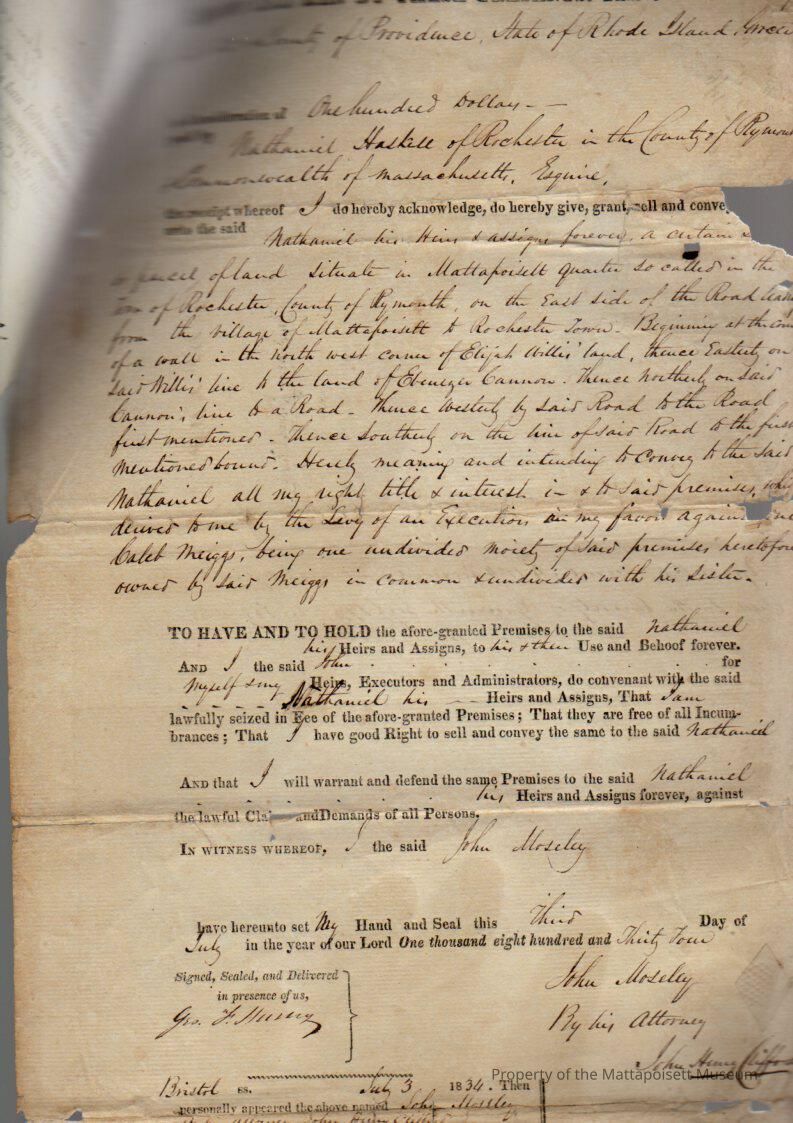 of Providence, State of Rhode Island
One hundred Dollars
Nathaniel Haskell of Rochester in the County of Plymouth
Commonwealth of Massachusetts, Esquire,
receipt whereof I do hereby acknowledge, do hereby give, grant, sell and conve
unto the said
Nathaniel his Heirs & assigns forever, a certain
parcel of land situate in Mattapoisett quarter so called in the
of Rochester, County of Plymouth, on the East side of the Road
from the village of Mattapoisett to Rochester Town. Beginning at the
of a wall in the North west corner of Elijah Willis' land, thence Easterly on
said Willis' line to the land of Ebenezer Cannon. Thence Northerly on said
Cannon's line to a Road. Thence Westerly by said Road to the Road
first mentioned. Thence Southerly on the line of said Road to the first
mentioned bound. Hereby meaning and intending to convey to the said
Nathaniel all my right title & interest in & to said premises,
derived to me by the Levy of an Execution in my favor against
Caleb Meiggs, being one undivided moiety of said premises heretofore
owned by said Meiggs in common & undivided with his sister.
TO HAVE AND TO HOLD the afore-granted Premises to the said Nathaniel
his Heirs and Assigns, to his & their Use and Behoof forever.
AND I the said John for
myself & my Heirs, Executors and Administrators, do convenant with the said
Nathaniel his Heirs and Assigns, That I am
lawfully seized in Fee of the afore-granted Premises; That they are free of all Incum-
brances; That I have good Right to sell and convey the same to the said Nathaniel
AND that I will warrant and defend the same Premises to the said Nathaniel
his Heirs and Assigns forever, against
the lawful Cla and Demands of all Persons.
IN WITNESS WHEREOF, I the said John Moseley
have hereunto set my Hand and Seal this Third Day of
July in the year of our Lord One thousand eight hundred and Thirty Four
Signed, Sealed, and Delivered
in presence of us,
John Moseley
By his Attorney
John Henry
Bristol ss. July 3 1834. Then
personally appeared the above named John Moseley
Property of the Mattapoisett Museum